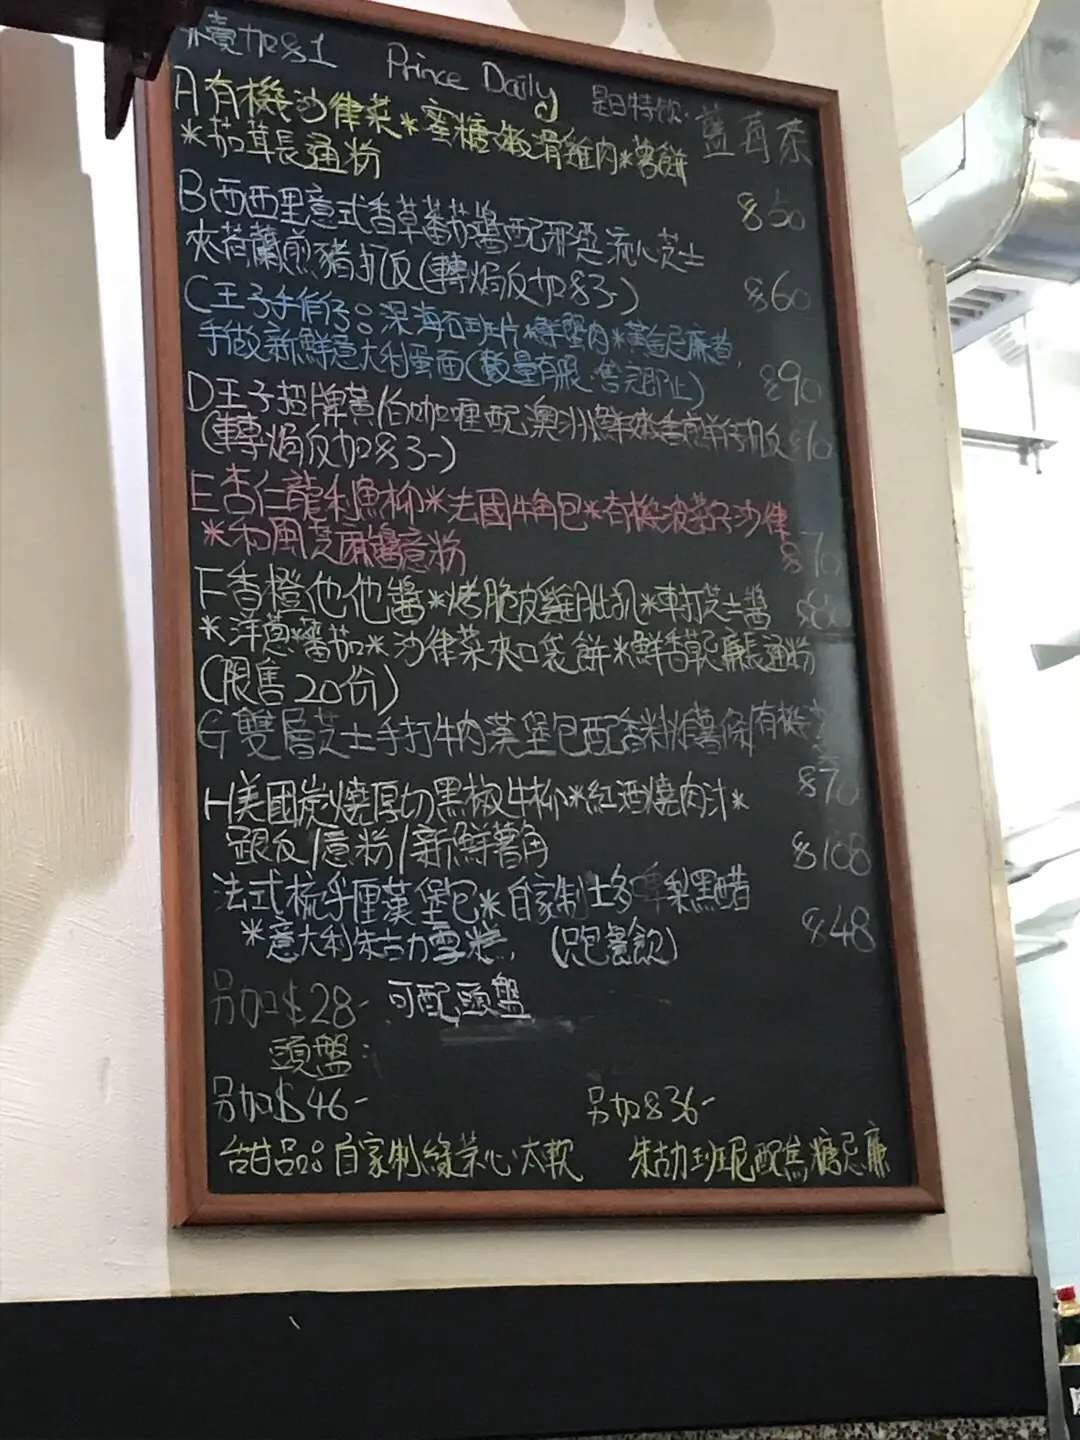 加$1 Prince Daily 是日特飲: 藍莓茶
A 有機沙律菜*蜜糖嫩滑雞肉*薯餅
*茄茸長通粉 $50
B 西西里意式香草蕃茄醬配邪惡流心芝士
夾荷蘭煎豬扒飯(轉焗飯加$3-) $60
C 王子手作仔:深海石班片*鮮蟹肉*黃金忌廉着
手做新鮮意大利蛋面(數量有限.售完即止) $90
D 王子招牌黃伯咖喱配澳洲鮮煎羊扒飯
(轉焗飯加$3-)
E 杏仁龍利魚柳*法國牛角包*有機菠菜沙律
*和風芝麻醬意粉 $70
F 香橙他他醬*烤脆皮雞肶扒*車打芝士醬
*洋蔥*蕃茄*沙律菜夾口袋餅*鮮香草忌廉長通粉
(限售20份)
G 雙層芝士手打牛肉漢堡包配香料炸薯條有機
$70
H 美國炭燒厚切黑椒牛柳*紅酒燒肉汁*
跟飯/意粉/新鮮薯角 $108
法式梳乎厘漢堡包*自家制士多啤梨黑醋
*意大利朱古力雪糕. (跑餐飲) $48
另加$28- 可配頭盤
頭盤:
另加$46- 另加$36-
甜品:自家制綠茶心太軟 朱古力班尼配焦糖忌廉